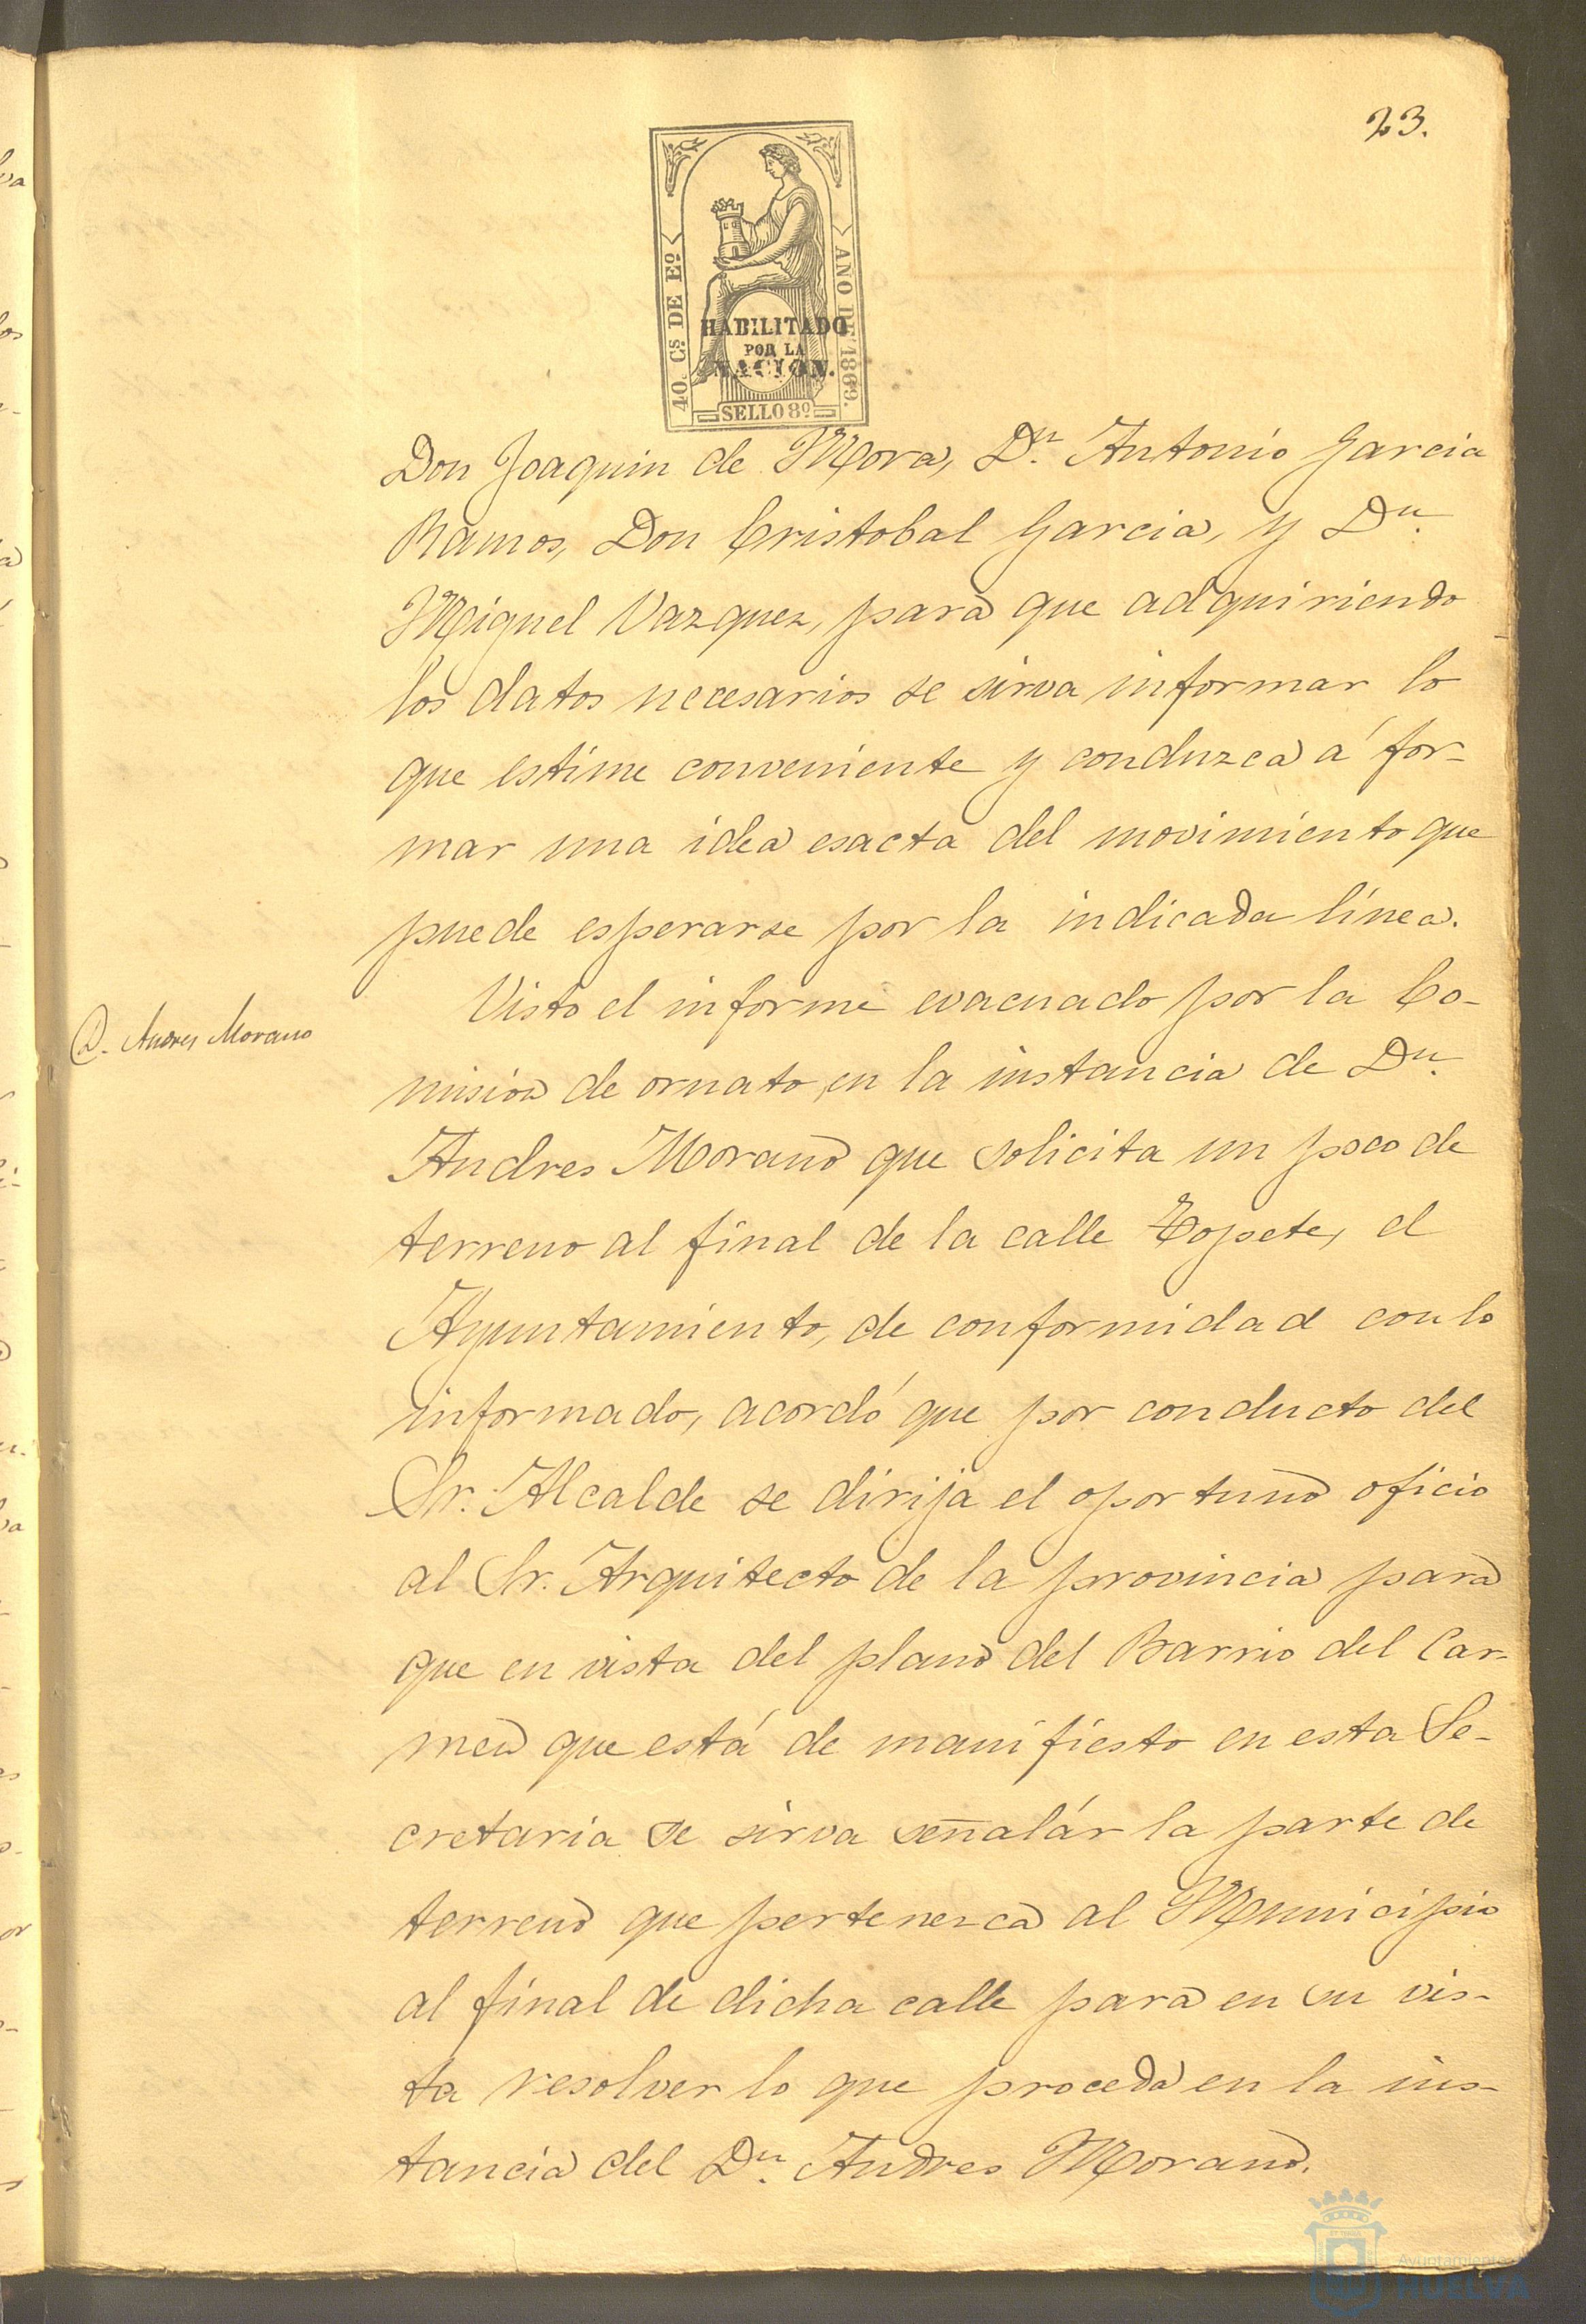 23.
40. Cs. DE Eº.
AÑO DE 1869.
HABILITADO
POR LA
NACION.
SELLO 8º
Don Joaquin de Mora, Dn. Antonio Garcia
Ramos, Don Cristobal Garcia, y Dn.
Miguel Vazquez, para que adquiriendo
los datos necesarios se sirva informar lo
que estime conveniente y conduzca á for-
mar una idea esacta del movimiento que
puede esperarse por la indicada línea.
D. Andres Morano
Visto el informe evacuado por la Co-
mision de ornato, en la instancia de Dn.
Andres Morano que solicita un poco de
terreno al final de la calle Topete, el
Ayuntamiento, de conformidad con lo
informado, acordó que por conducto del
Sr. Alcalde se dirija el oportuno oficio
al Sr. Arquitecto de la provincia para
que en vista del plano del Barrio del Car-
men que está de manifiesto en esta Se-
cretaria se sirva señalár la parte de
terreno que pertenezca al Municipio
al final de dicha calle para en su vis-
ta resolver lo que proceda en la ins-
tancia del Dn. Andres Morano.
Ayuntamiento
HUELVA